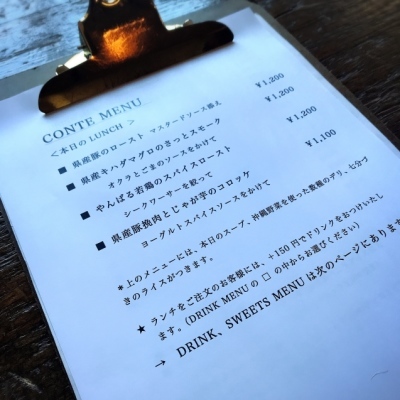 CONTE MENU
<本日のLUNCH >
■ 県産豚のロースト マスタードソース添え ¥1,200
■ 県産キハダマグロのさっとスモーク ¥1,200
オクラとごまのソースをかけて
■ やんばる若鶏のスパイスロースト ¥1,200
シークワーサーを絞って
■ 県産豚挽肉とじゃが芋のコロッケ ¥1,100
ヨーグルトスパイスソースをかけて
*上のメニューには、本日のスープ、沖縄野菜を使った数種のデリ、七分づ
きのライスがつきます。
★ ランチをご注文のお客様には、+150円でドリンクをおつけいたし
ます。(DRINK MENU の □ の中からお選びください)
→ DRINK、SWEETS MENU は次のページにあります